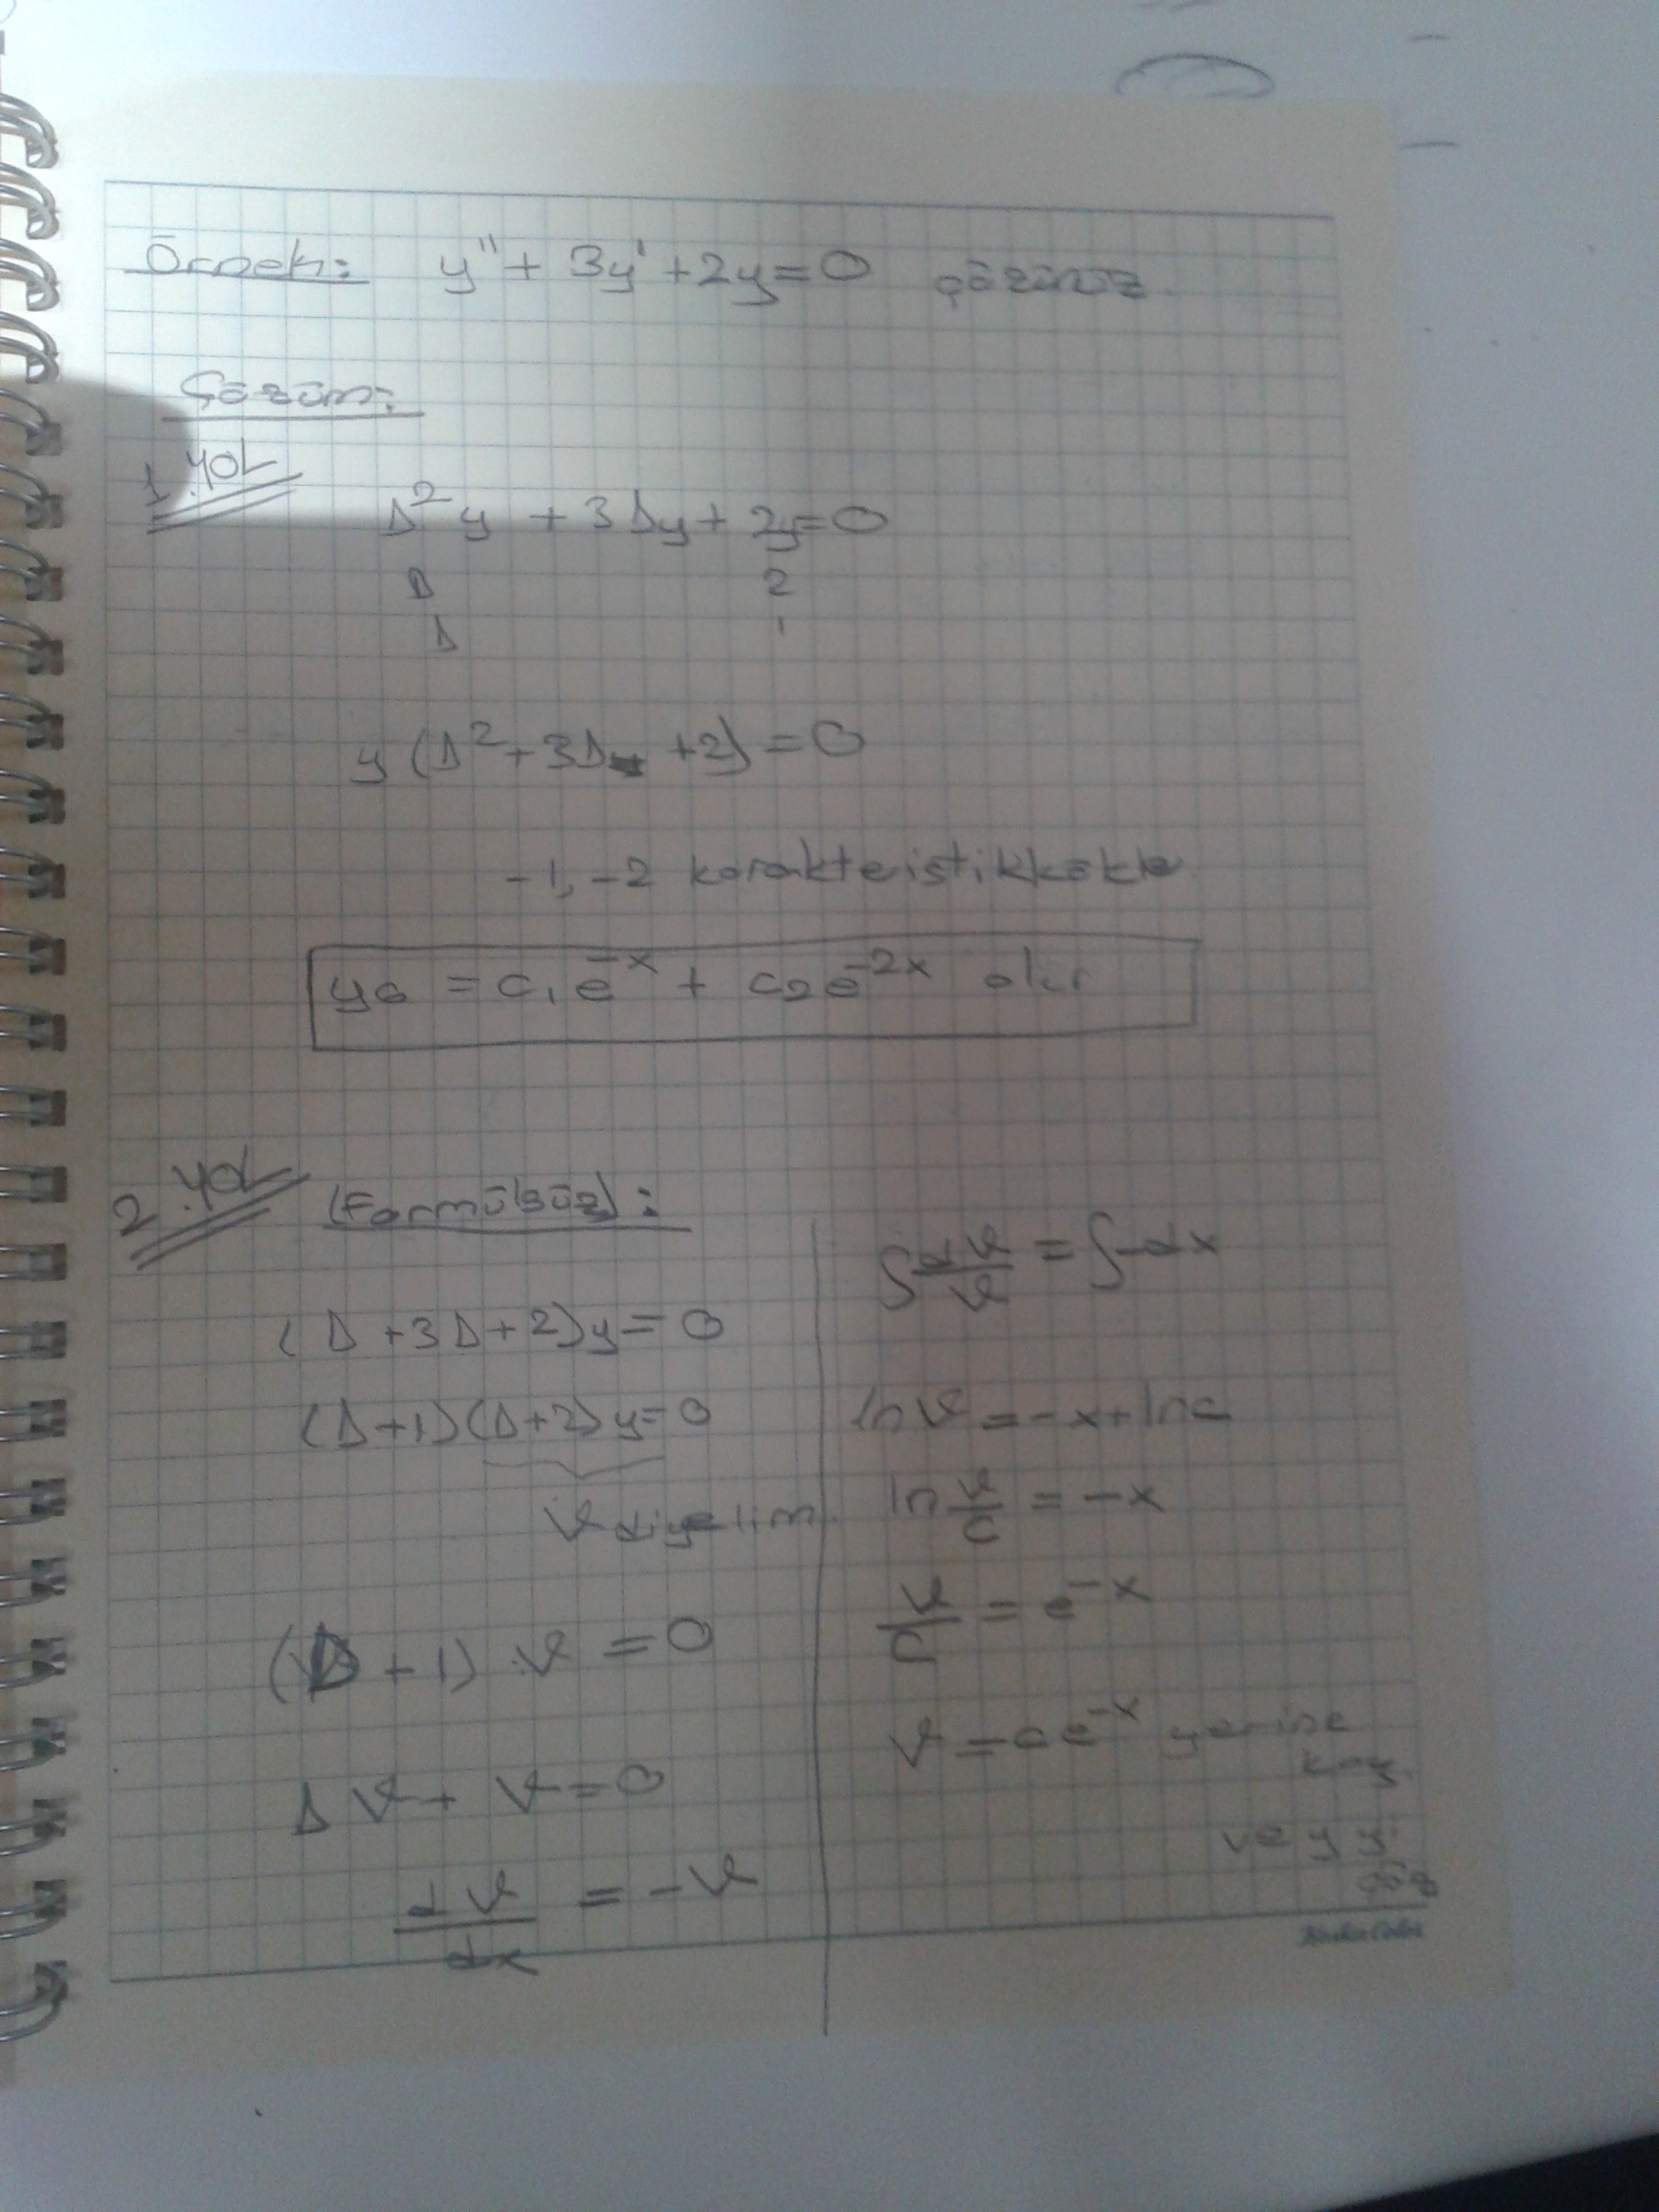 Örnek: y'' + 3y' + 2y = 0 çözünüz.
Çözüm:
1.YOL
D²y + 3Dy + 2y = 0
D 2
D 1
y (D² + 3D + 2) = 0
-1, -2 karakteistik kökle
yG = c₁e^-x + c₂e^-2x olur
2.YOL (Formülsüz):
(D + 3D + 2)y = 0
(D+1)(D+2)y = 0
v diyelim.
(D + 1) . v = 0
Dv + v = 0
dv/dx = -v
∫ dv/v = ∫ -dx
ln v = -x + ln c
ln v/c = -x
v/c = e^-x
v = ce^-x yerine
koy.
ve y yi
çöz